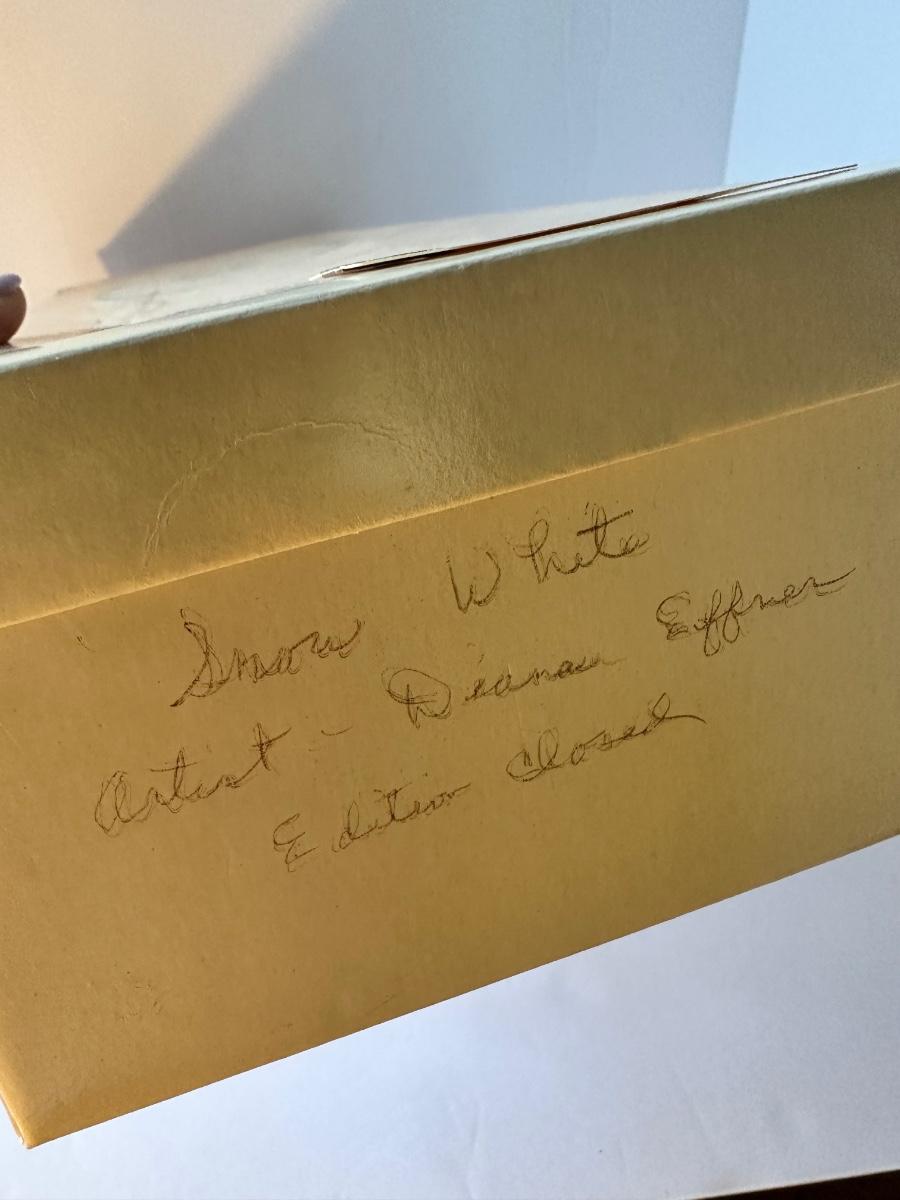 Snow White
Artist - Dianna Effner
Edition Closed